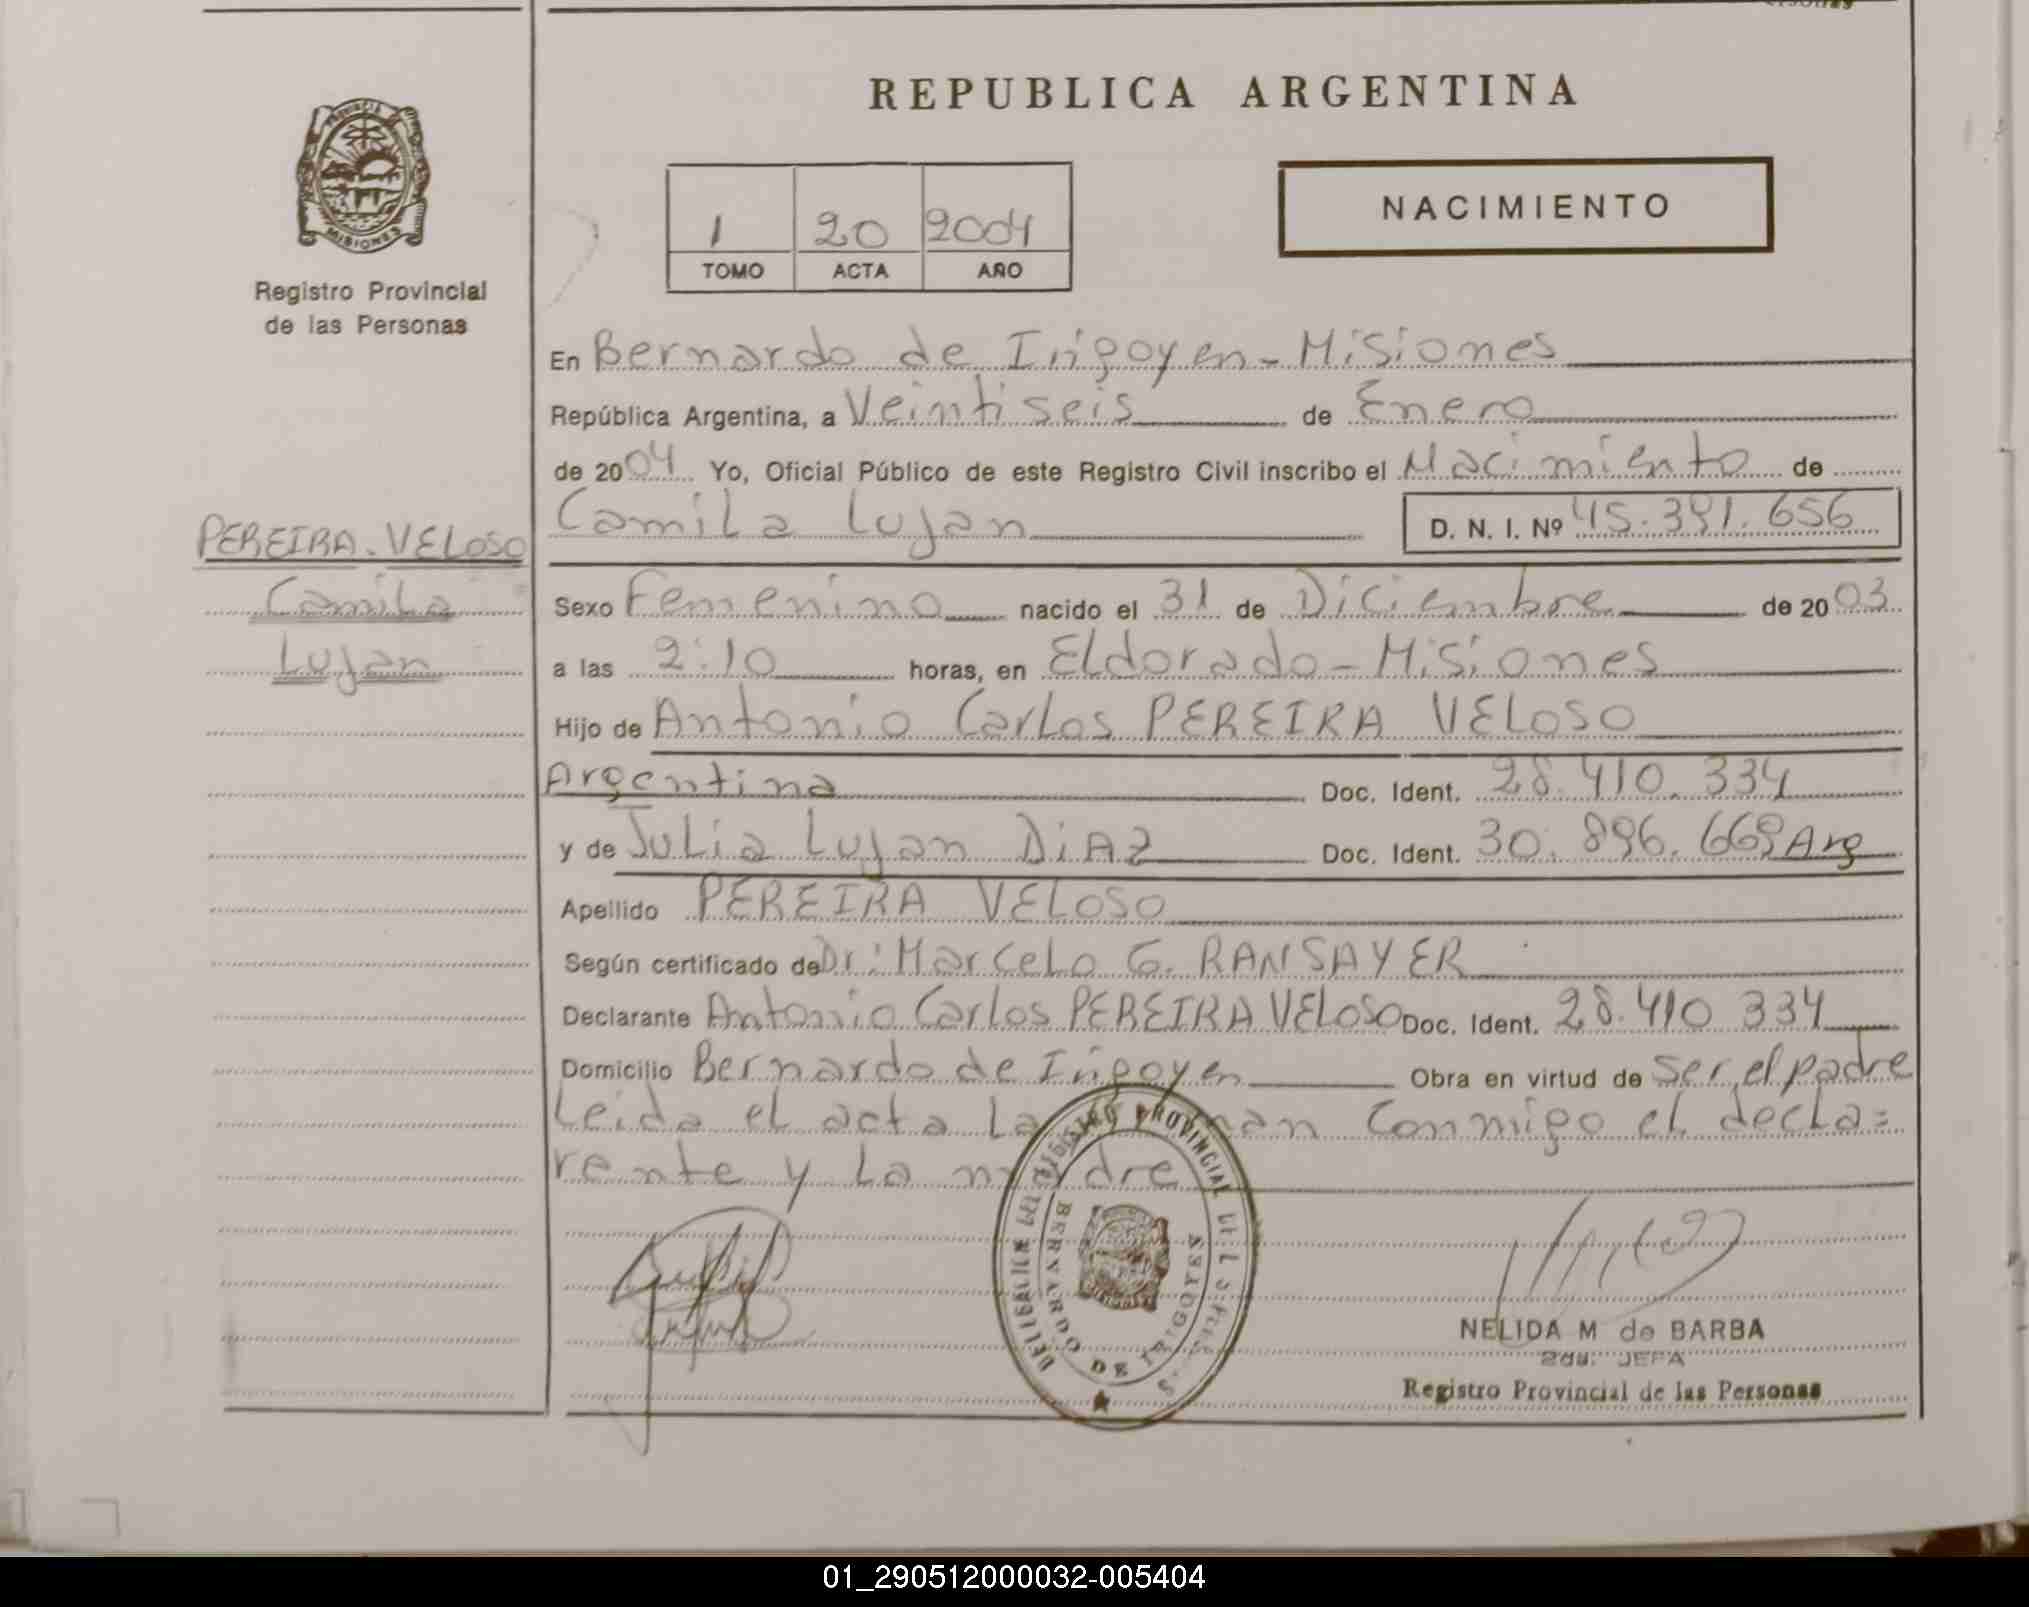 REPUBLICA ARGENTINA
PROVINCIA
MISIONES
Registro Provincial
de las Personas
1 20 2004
TOMO ACTA AÑO
NACIMIENTO
En Bernardo de Irigoyen - Misiones
República Argentina, a Veintiseis de Enero
de 2004 Yo, Oficial Público de este Registro Civil inscribo el Nacimiento de
Camila Lujan D. N. I. Nº 45.391.656
PEREIRA VELOSO
Camila
Lujan
Sexo Femenino nacido el 31 de Diciembre de 2003
a las 2:10 horas, en Eldorado - Misiones
Hijo de Antonio Carlos PEREIRA VELOSO
Argentina Doc. Ident. 28.410.334
y de Julia Lujan DiAZ Doc. Ident. 30.896.669 Arg
Apellido PEREIRA VELOSO
Según certificado de Dr: Marcelo G. RANSAYER
Declarante Antonio Carlos PEREIRA VELOSO Doc. Ident. 28.410 334
Domicilio Bernardo de Irigoyen Obra en virtud de ser el padre
Leida el acta la conmigo el decla=
rente y La madre
REGISTRO PROVINCIAL DE LAS
BERNARDO DE IRIGOYEN
NELIDA M de BARBA
2da. JEFA
Registro Provincial de las Personas
01_290512000032-005404